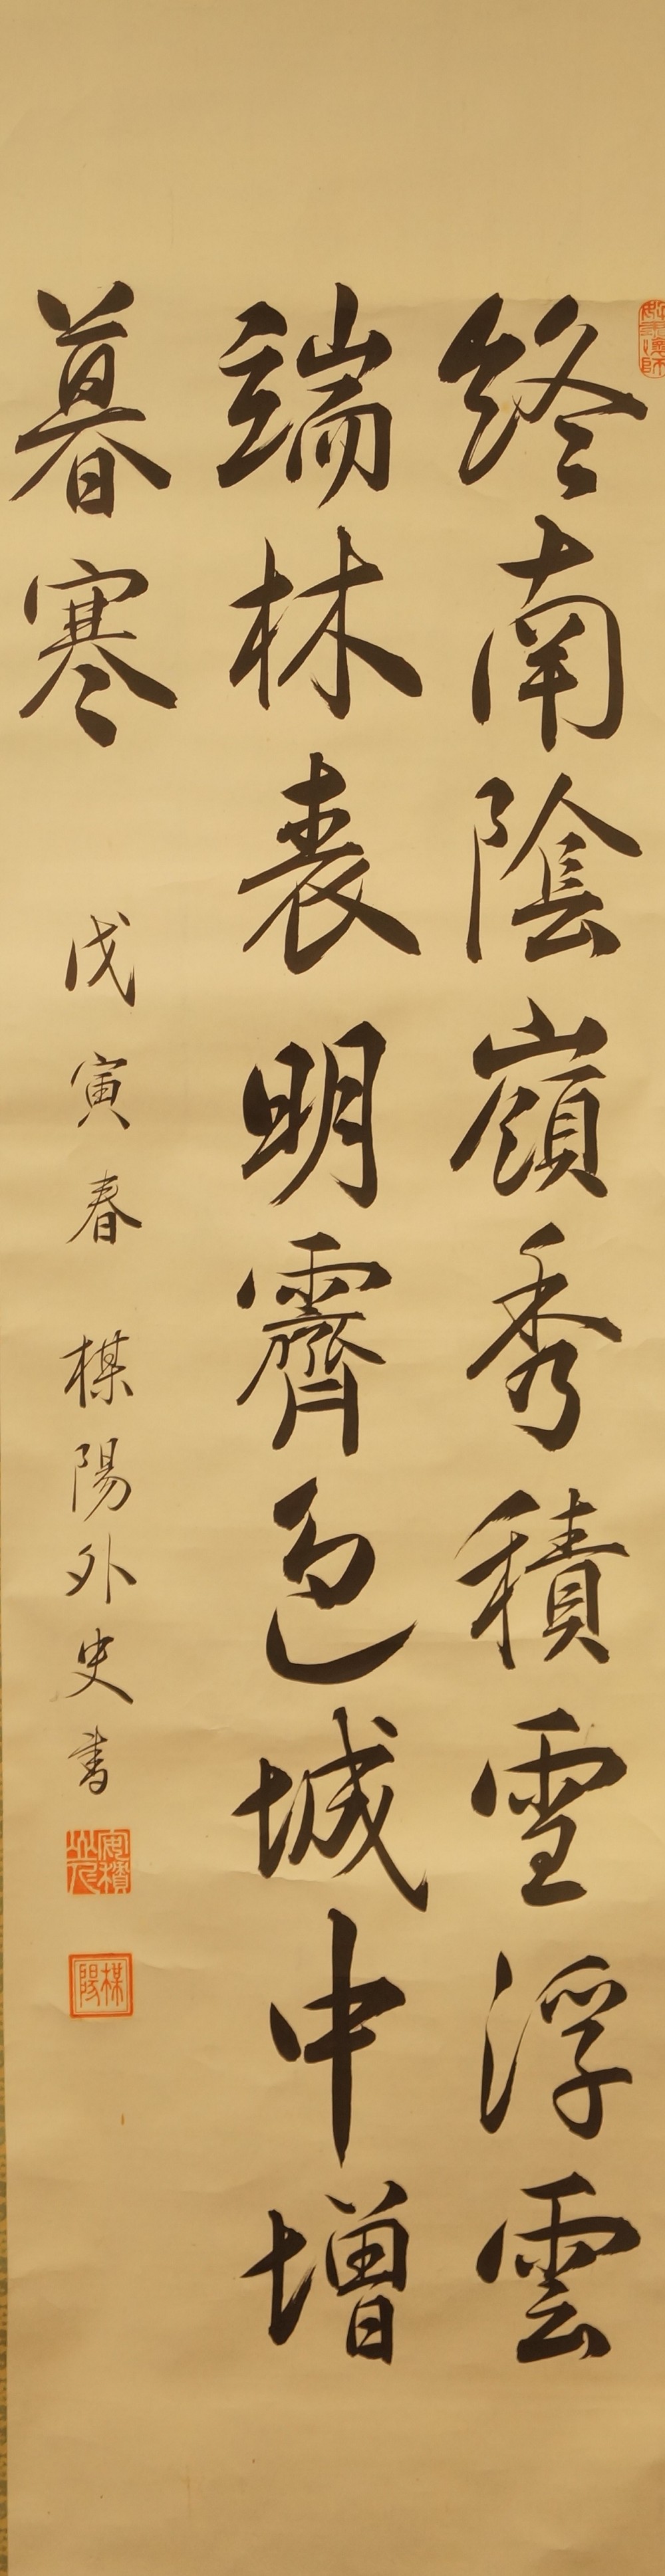 終南陰嶺秀積雪浮雲
端林表明霽色城中增
暮寒
戊寅春 楳陽外史書
楳陽